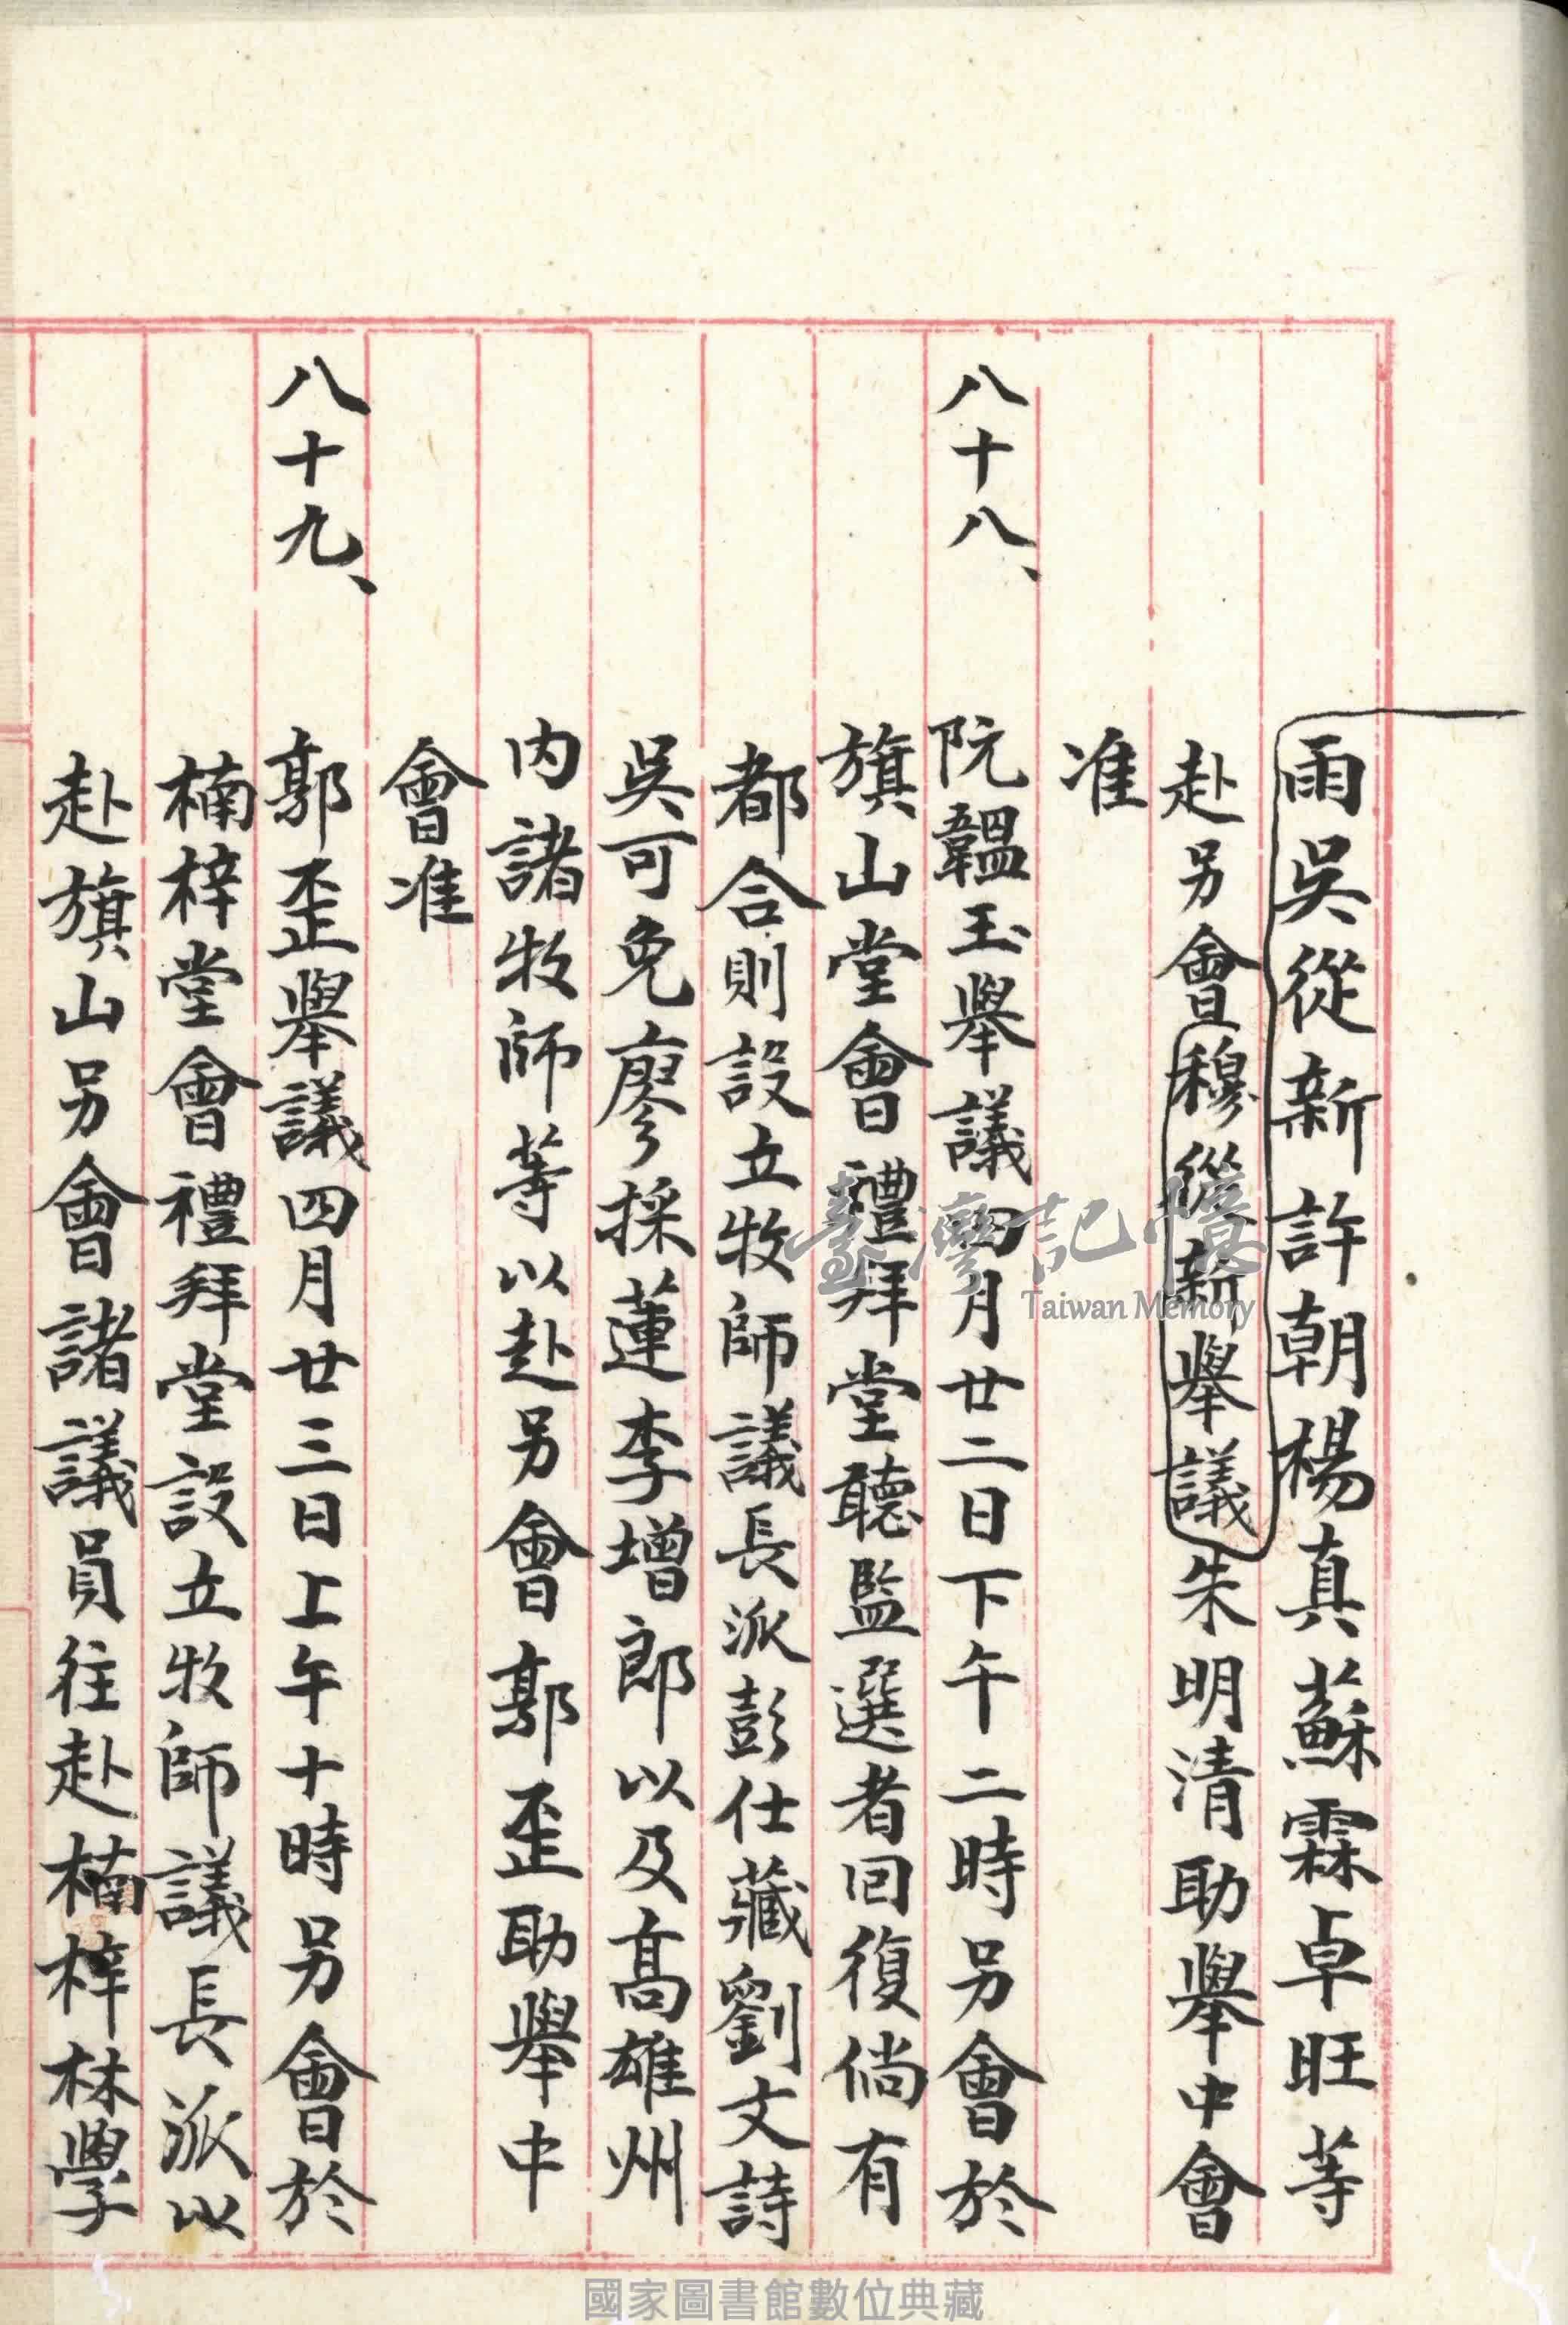 雨吳從新許朝楊真蘇霖卓旺等
赴另會穆從新舉議朱明清助舉中會
准
八十八、阮韞玉舉議四月廿二日下午二時另會於
旗山堂會禮拜堂聽監選者回復倘有
都合則設立牧師議長派彭仕藏劉文詩
吳可免廖採蓮李增郎以及高雄州
內諸牧師等以赴另會郭歪助舉中
會准
八十九、郭歪舉議四月廿三日上午十時另會於
楠梓堂會禮拜堂設立牧師議長派以
赴旗山另會諸議員往赴楠梓林學
臺灣記憶
Taiwan Memory
國家圖書館數位典藏